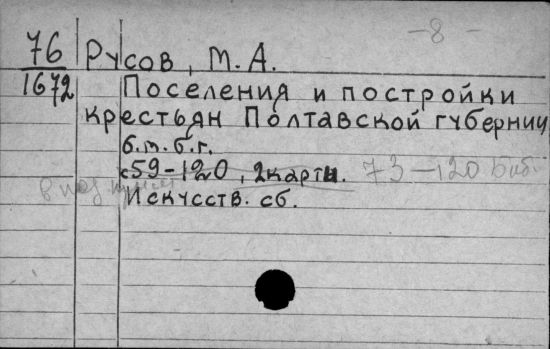 -8-
76
1672
Русов, М. А.
Поселения и постройки
крестьян Полтавской губернии
б.т. б.г.
с59-120, 2карты. 73-120 Биб.
Искусств. сб.